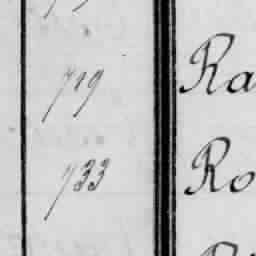 719 Ra
733 Ro